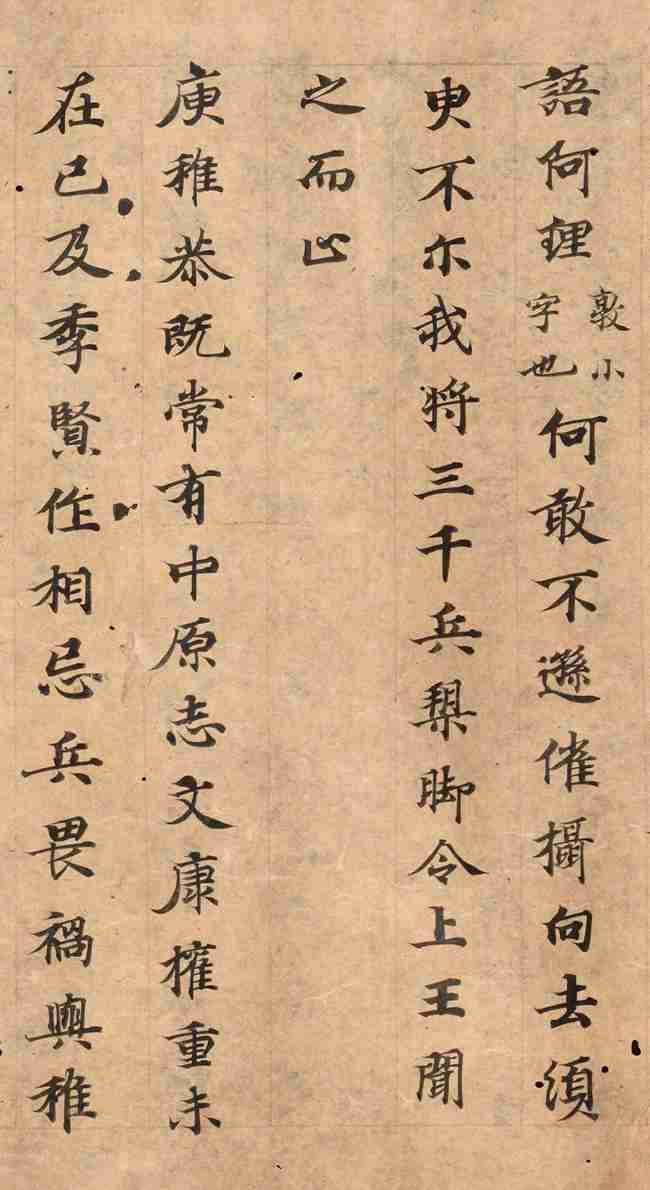 語何理敦小字也何敢不遜催攝向去須
臾不尓我将三千兵槊脚令上王聞
之而止
庾稚恭既常有中原志文康權重未
在已及季賢作相忌兵畏禍與稚